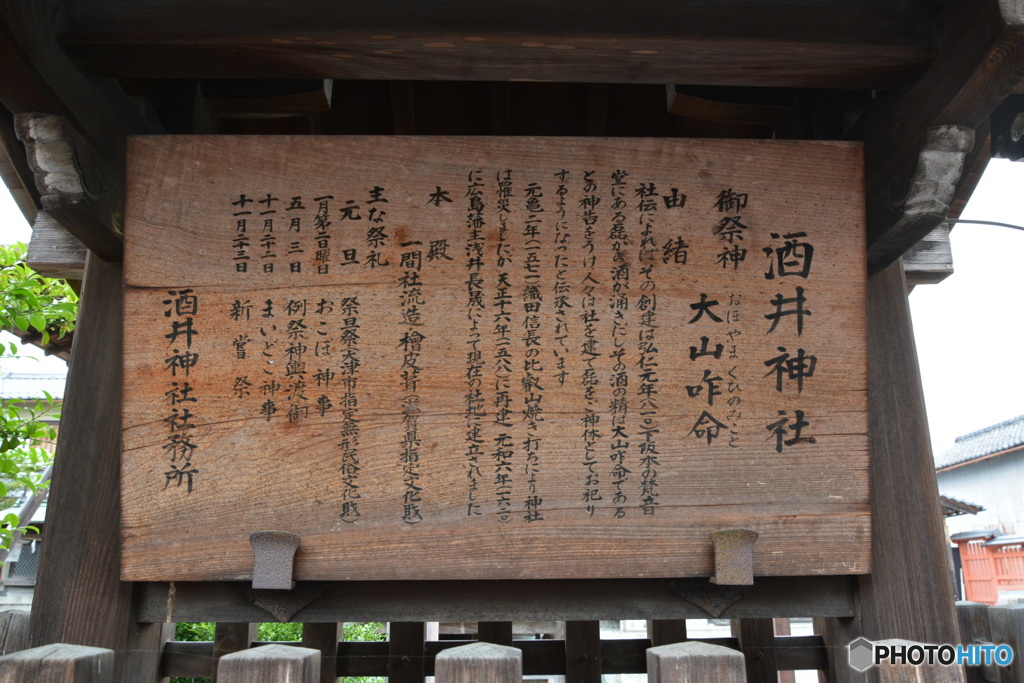 酒井神社
御祭神
おほやまくひのみこと
大山咋命
由緒
社伝によればその創建は弘仁元年(八一〇)下阪本の梵音
堂にある磊から酒が涌きだしその酒の精は大山咋命である
との神告をうけ人々は社を建て磊をご神体としてお祀り
するようになったと伝承されています
元亀二年(一五七一)織田信長の比叡山焼き打ちにより神社
は罹災しましたが天正十六年(一五八八)に再建 元和六年(一六二〇)
に広島藩主浅井長晟によって現在の社地に建立されました
本殿
一間社流造・檜皮葺(滋賀県指定文化財)
主な祭礼
元旦 祭旦祭(大津市指定無形民俗文化財)
一月第二日曜日 おこぼ神事
五月三日 例祭神輿渡御
十一月二十二日 まいどこ神事
十一月二十三日 新嘗祭
酒井神社社務所
PHOTOHITO